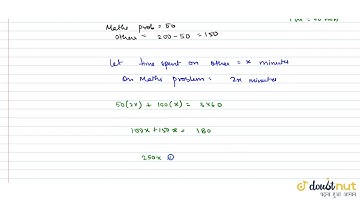 Maths prob = 50
Others = 200-50 = 150
Let time spent on other = x minutes
On Maths problem = 2x minutes
50(2x) + 100(x) = 3x60
100x + 150x = 180
250x
doubtnut